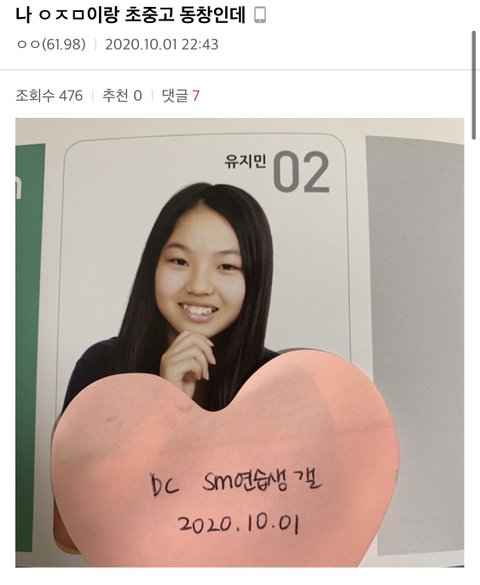 나 ㅇㅈㅁ이랑 초중고 동창인데
ㅇㅇ(61.98) | 2020.10.01 22:43
조회수 476 | 추천 0 | 댓글 7
유지민 02
DC sm연습생 갤
2020.10.01